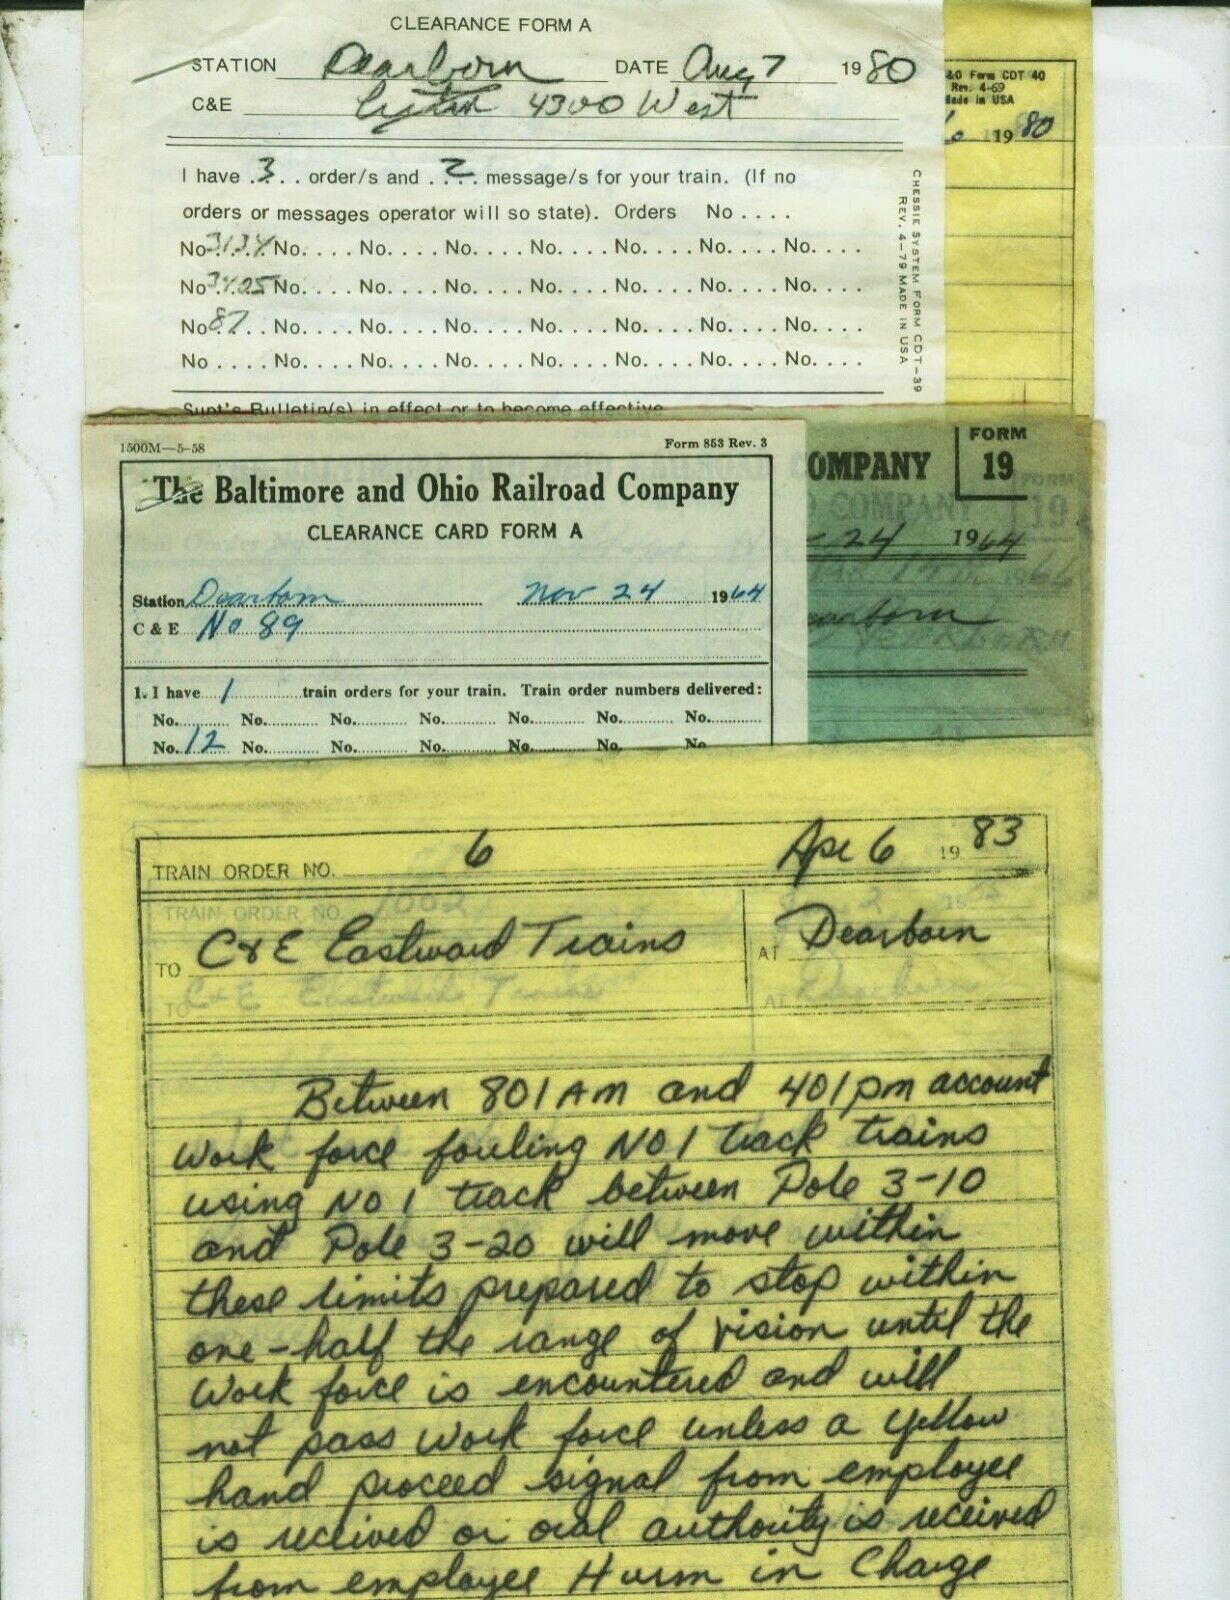 CLEARANCE FORM A
STATION Dearborn DATE Aug 7 1980
C&E 4300 West
I have . 3 . . order/s and . 2 . . message/s for your train. (If no
orders or messages operator will so state). Orders No . . . .
No 3134 No. . . . No. . . . No. . . . No. . . . No. . . . No. . . . No. . . .
No 3405 No. . . . No. . . . No. . . . No. . . . No. . . . No. . . . No. . . .
No 87 . . No. . . . No. . . . No. . . . No. . . . No. . . . No. . . . No. . . .
No . . . . No. . . . No. . . . No. . . . No. . . . No. . . . No. . . . No. . . .
Supt's Bulletin(s) in effect or to become effective
CHESSIE SYSTEM FORM CDT-39
REV. 4-79 MADE IN USA
Form CDT 40
Rev. 4-69
Made in USA
1980
1500M—5-58 Form 853 Rev. 3
The Baltimore and Ohio Railroad Company
CLEARANCE CARD FORM A
Station Dearborn Nov 24 1964
C & E No 89
1. I have 1 train orders for your train. Train order numbers delivered:
No. No. No. No. No. No. No.
No. 12 No. No. No. No. No. No.
OMPANY FORM
19
COMPANY FORM
19
24 1964
1966
earborn
TRAIN ORDER NO. 6 Apr 6 1983
TRAIN ORDER NO. 1002 2 19
TO C&E Eastward Trains AT Dearborn
TO C&E Eastward Trains AT Dearborn
Between 801 AM and 401 pm account
Work force fouling NO 1 track trains
using NO 1 track between Pole 3-10
and Pole 3-20 will move within
these limits prepared to stop within
one-half the range of vision until the
Work force is encountered and will
not pass Work force unless a yellow
hand proceed signal from employee
is received or oral authority is received
from employee Hurm in Charge